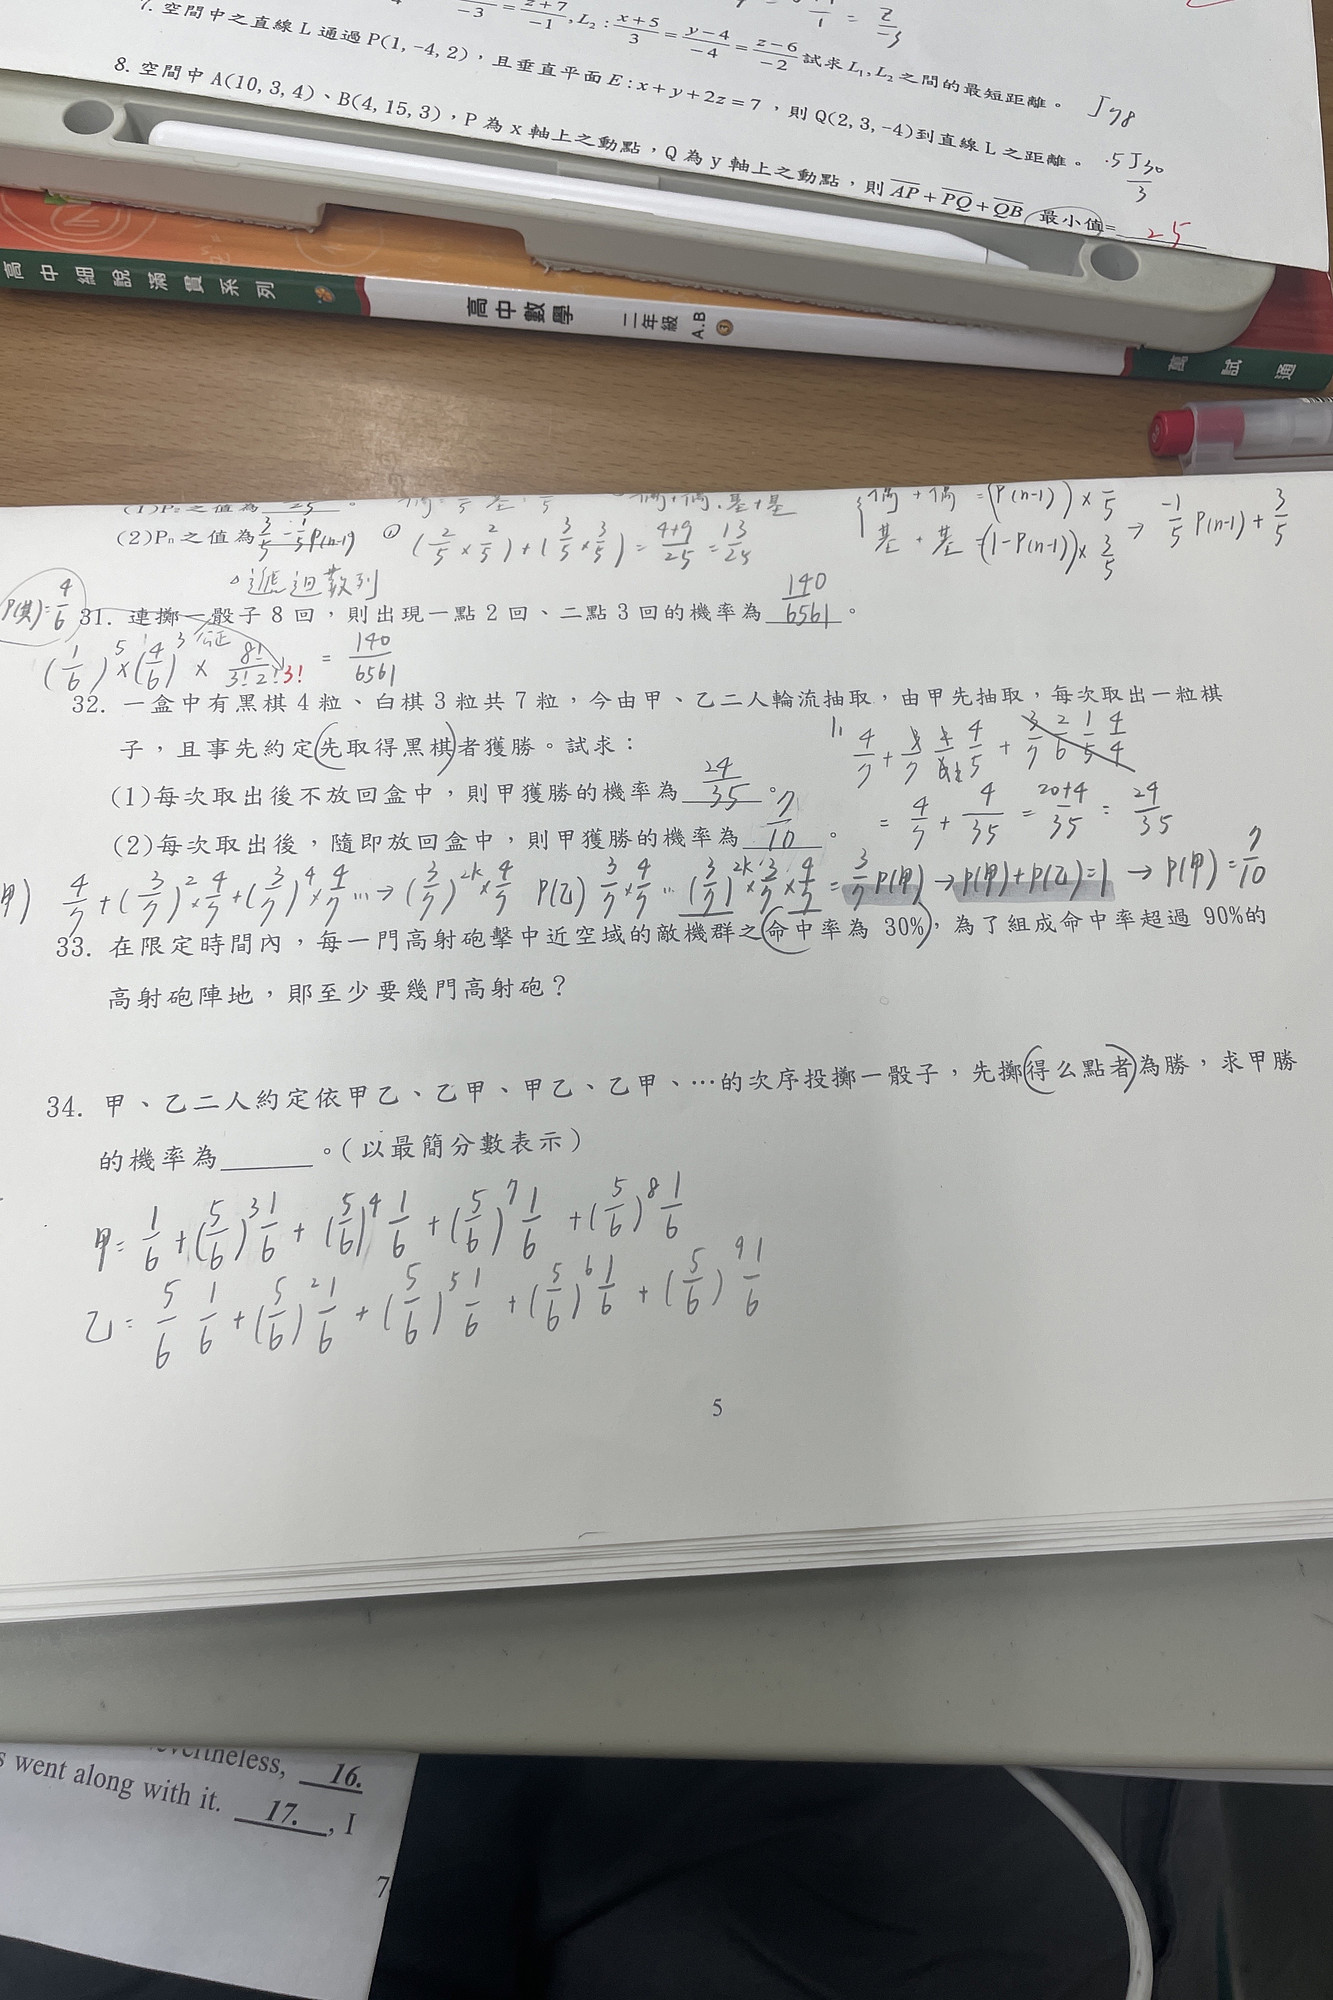 -3 = z+7/-1, L₂: x+5/3 = y-4/-4 = z-6/-2 試求 L₁, L₂ 之間的最短距離。 √98
7. 空間中之直線 L 通過 P(1, -4, 2),且垂直平面 E : x + y + 2z = 7,則 Q(2, 3, -4)到直線 L 之距離。 5√30/3
8. 空間中 A(10, 3, 4)、B(4, 15, 3),P 為 x 軸上之動點,Q 為 y 軸上之動點,則 AP + PQ + QB 最小值= 25
高中細說滿貫系列 高中數學 二年級 A.B 萬試通
(2)Pₙ 之值為 3/5 - 1/5 P(n-1) ① (2/5 × 2/5) + (3/5 × 3/5) = 4+9/25 = 13/25
偶 + 偶 = (P(n-1)) × /5
基 + 基 = (1-P(n-1)) × 3/5 → -1/5 P(n-1) + 3/5
遞迴數列
P(其) = 4/6
31. 連擲一骰子 8 回,則出現一點 2 回、二點 3 回的機率為 140/6561。
(1/6)⁵ × (4/6)³ × 8!/3!2!3! = 140/6561
32. 一盒中有黑棋 4 粒、白棋 3 粒共 7 粒,今由甲、乙二人輪流抽取,由甲先抽取,每次取出一粒棋
子,且事先約定先取得黑棋者獲勝。試求:
(1)每次取出後不放回盒中,則甲獲勝的機率為 24/35。
= 4/7 + 4/35 = 20+4/35 = 24/35
(2)每次取出後,隨即放回盒中,則甲獲勝的機率為 7/10。
甲) 4/7 + (3/7)² × 4/7 + (3/7)⁴ × 4/7 ... → (3/7)²ᵏ × 4/7 P(乙) 3/7 × 4/7 ... (3/7)²ᵏ × 3/7 × 4/7 = 3/7 P(甲) → P(甲) + P(乙) = 1 → P(甲) = 7/10
33. 在限定時間內,每一門高射砲擊中近空域的敵機群之命中率為 30%,為了組成命中率超過 90%的
高射砲陣地,那至少要幾門高射砲?
34. 甲、乙二人約定依甲乙、乙甲、甲乙、乙甲、…的次序投擲一骰子,先擲得么點者為勝,求甲勝
的機率為______。(以最簡分數表示)
甲 = 1/6 + (5/6)³ 1/6 + (5/6)⁴ 1/6 + (5/6)⁷ 1/6 + (5/6)⁸ 1/6
乙 = 5/6 1/6 + (5/6)² 1/6 + (5/6)⁵ 1/6 + (5/6)⁶ 1/6 + (5/6)⁹ 1/6
5
evertheless, 16.
s went along with it. 17., I
7